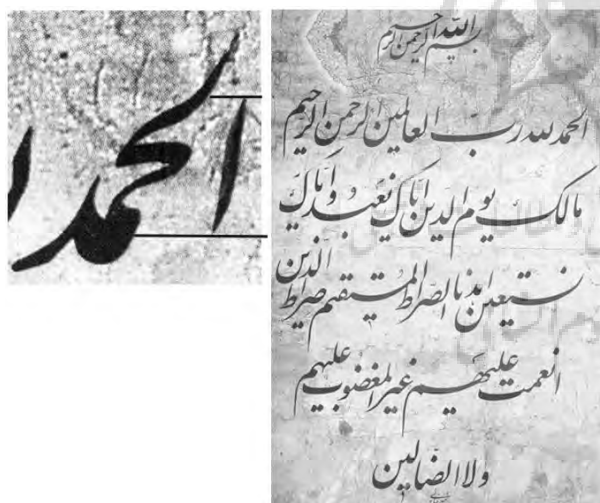 الحمد
بسم الله الرحمن الرحیم
الحمد لله رب العالمین الرحمن الرحیم
مالک یوم الدین ایاک نعبد و ایاک
نستعین اهدنا الصراط المستقیم صراط الذین
انعمت علیهم غیر المغضوب علیهم
ولا الضالین